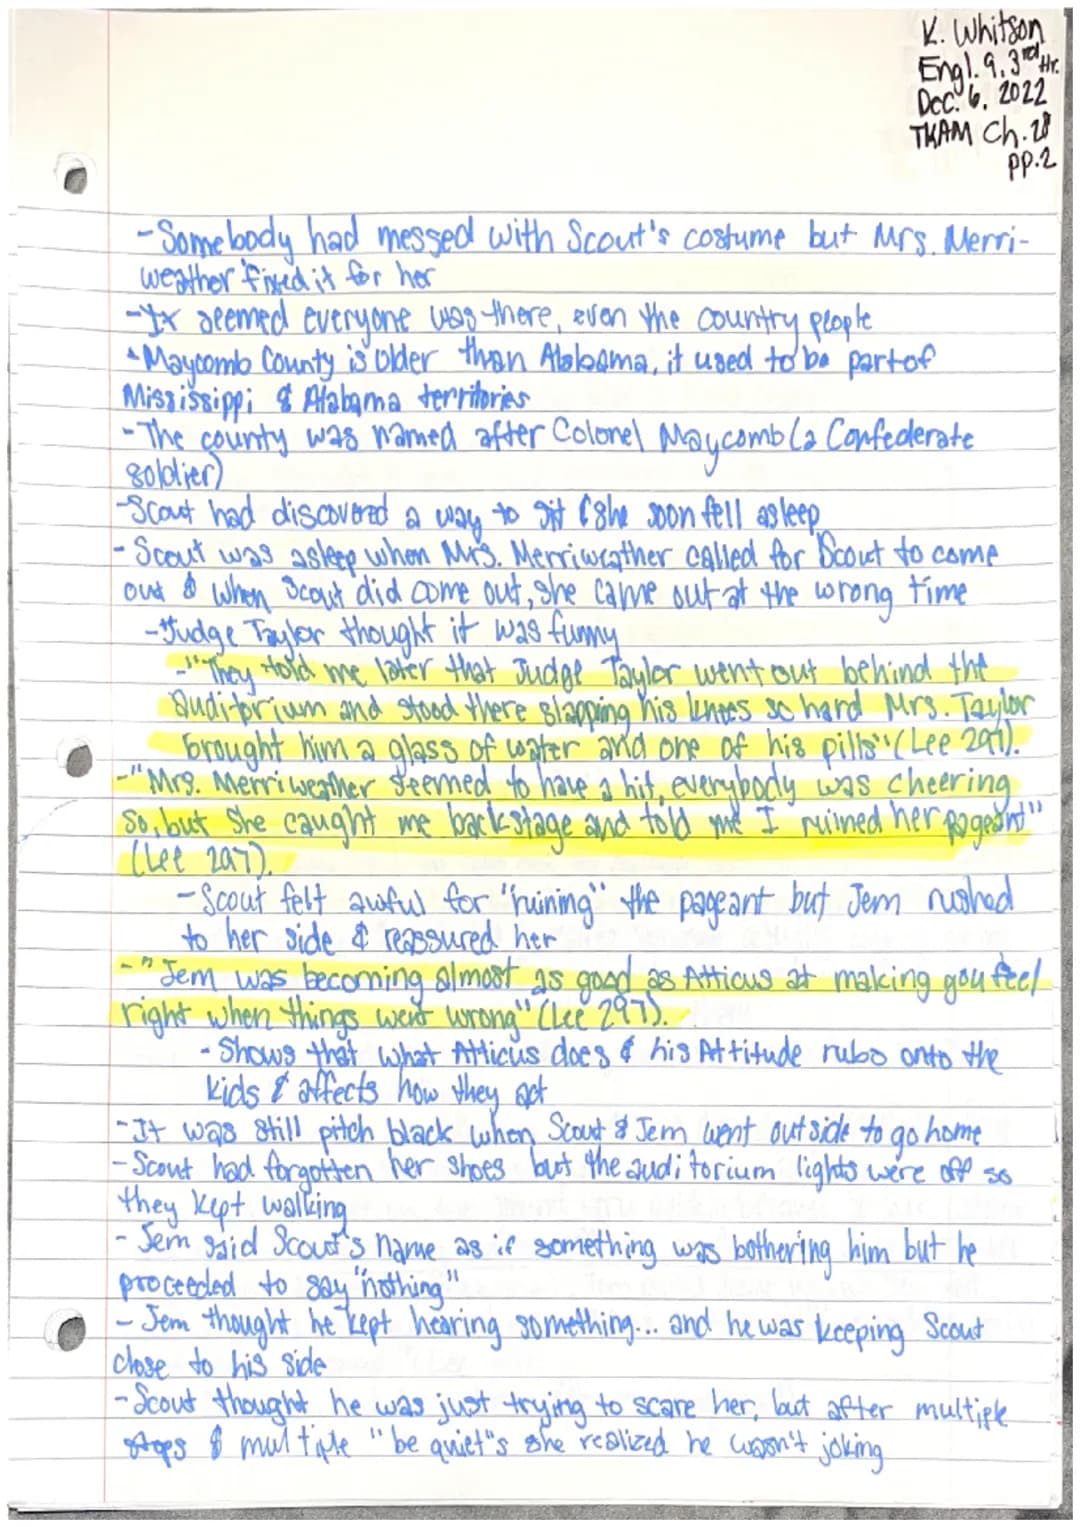 K. Whitson
Engl. 9, 3rd Hr.
Dec. 6, 2022
TKAM Ch. 28
pp. 2
- Somebody had messed with Scout's costume but Mrs. Merri-
weather fixed it for her
- It seemed everyone was there, even the country people
- Maycomb County is older than Alabama, it used to be part of
Mississippi & Alabama territories
- The county was named after Colonel Maycomb (a Confederate
soldier)
- Scout had discovered a way to sit & she soon fell asleep
- Scout was asleep when Mrs. Merriweather called for Scout to come
out & when Scout did come out, she came out at the wrong time
- Judge Taylor thought it was funny
- "They told me later that Judge Taylor went out behind the
auditorium and stood there slapping his knees so hard Mrs. Taylor
brought him a glass of water and one of his pills" (Lee 297).
- "Mrs. Merriweather seemed to have a hit, everybody was cheering
so, but she caught me backstage and told me I ruined her pageant"
(Lee 297).
- Scout felt awful for "ruining" the pageant but Jem rushed
to her side & reassured her
- "Jem was becoming almost as good as Atticus at making you feel
right when things went wrong" (Lee 297).
- Shows that what Atticus does & his Attitude rubs onto the
kids & affects how they act
- It was still pitch black when Scout & Jem went outside to go home
- Scout had forgotten her shoes but the auditorium lights were off so
they kept walking
- Jem said Scout's name as if something was bothering him but he
proceeded to say "nothing"
- Jem thought he kept hearing something... and he was keeping Scout
close to his side
- Scout thought he was just trying to scare her, but after multiple
stops & multiple "be quiet"s she realized he wasn't joking